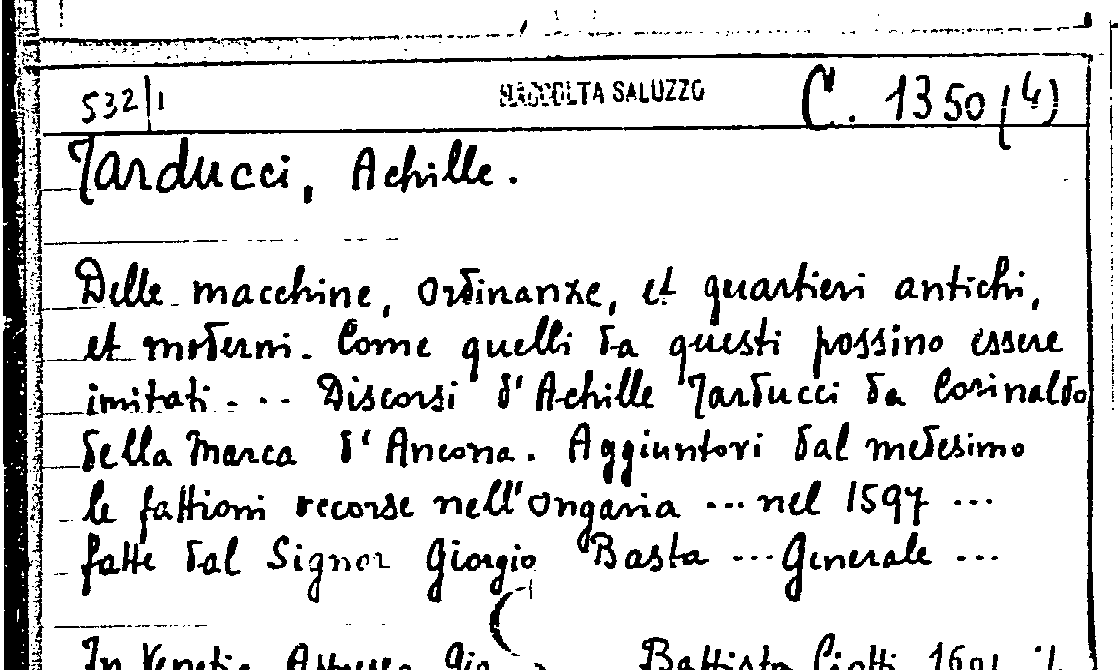 532/1 RACCOLTA SALUZZO C. 1350 (4)
Tarducci, Achille.
Delle macchine, ordinanze, et quartieri antichi,
et moderni. Come quelli da questi possino essere
imitati... Discorsi d'Achille Tarducci da Corinaldo
della Marca d'Ancona. Aggiuntovi dal medesimo
le fattioni occorse nell'Ongaria ... nel 1597 ...
fatte dal Signor Giorgio Basta ... Generale ...
In Venetia Appresso Gio Battista Ciotti 1601